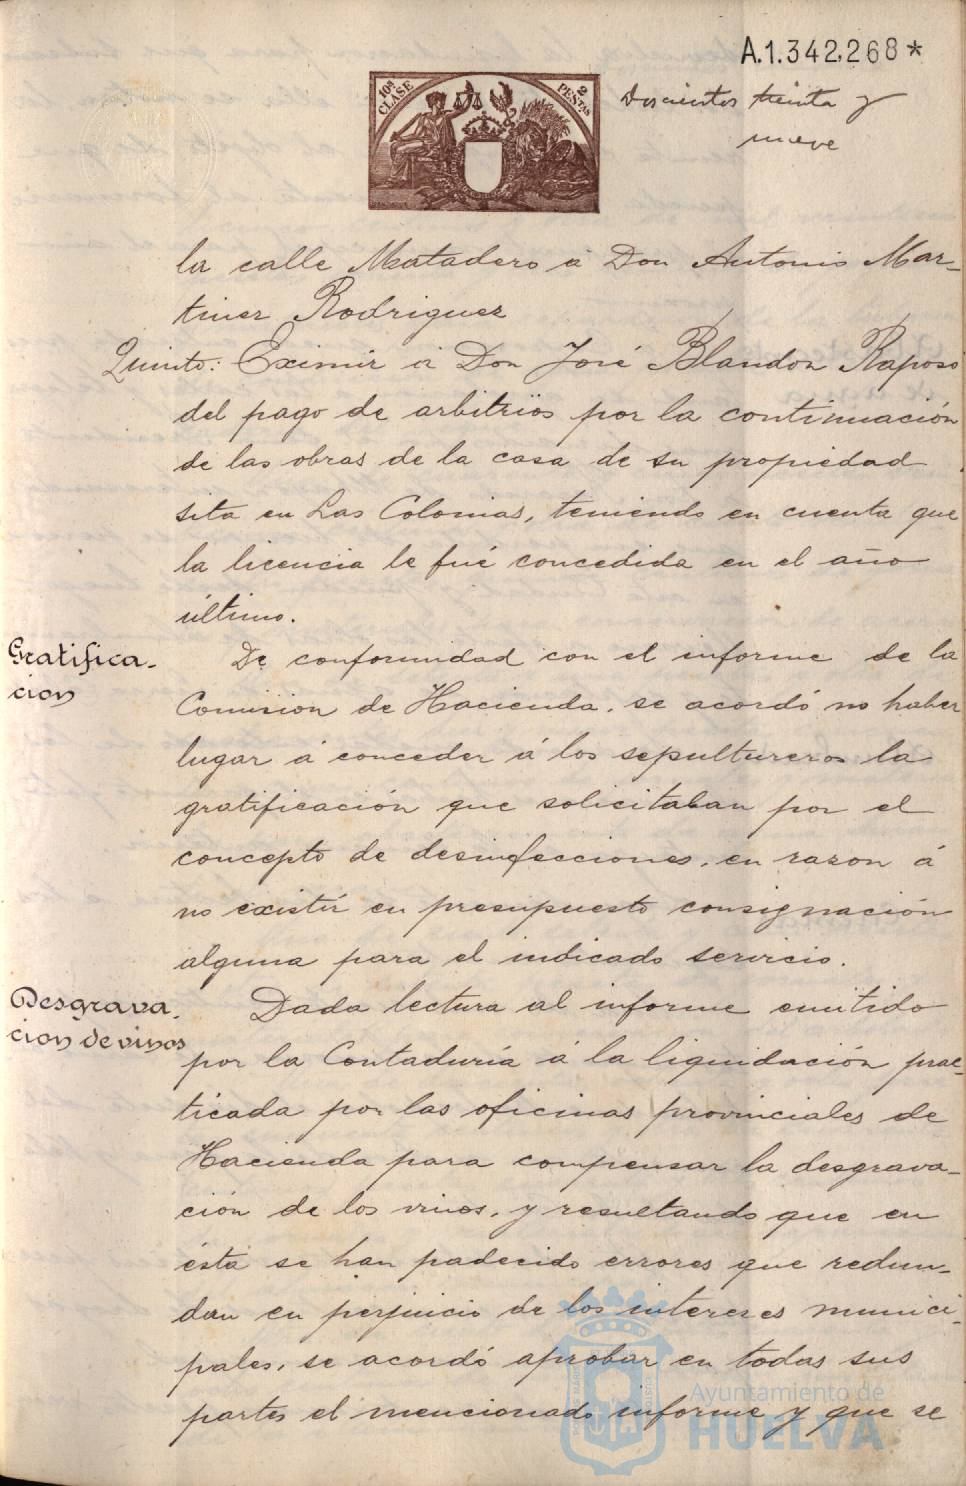 A.1.342.268*
10ª CLASE
2 PESTAS
Doscientos treinta y
nueve
la calle Matadero á Don Antonio Mar-
tinez Rodriguez
Quinto: Eximir á Don José Blandon Raposo
del pago de arbitrios por la continuación
de las obras de la casa de su propiedad
sita en Las Colonias, teniendo en cuenta que
la licencia le fué concedida en el año
último.
Gratifica-
cion
De conformidad con el informe de la
Comision de Hacienda, se acordó no haber
lugar á conceder á los sepultureros la
gratificación que solicitaban por el
concepto de desinfecciones, en razon á
no existir en presupuesto consignación
alguna para el indicado servicio.
Desgrava-
cion de vinos
Dada lectura al informe emitido
por la Contaduría á la liquidación prac-
ticada por las oficinas provinciales de
Hacienda para compensar la desgrava-
ción de los vinos, y resultando que en
ésta se han padecido errores que redun-
dan en perjuicio de los intereses munici-
pales, se acordó aprobar en todas sus
partes el mencionado informe y que se
Ayuntamiento de
HUELVA